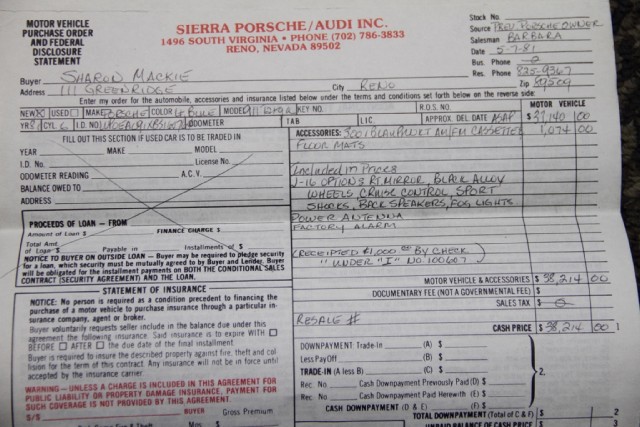 MOTOR VEHICLE
PURCHASE ORDER
AND FEDERAL
DISCLOSURE
STATEMENT
SIERRA PORSCHE/AUDI INC.
1496 SOUTH VIRGINIA • PHONE (702) 786-3833
RENO, NEVADA 89502
Stock No.
Source PREV. PORSCHE OWNER
Salesman BARBARA
Date 5-7-81
Bus. Phone
Res. Phone 825-9367
Buyer SHARON MACKIE
Address 111 GREENRIDGE City RENO Zip
Enter my order for the automobile, accessories and insurance listed below under the terms and conditions set forth below on the reverse side.
NEW USED MAKE PORSCHE COLOR MODEL KEY NO. R.O.S. NO. MOTOR VEHICLE
YR CYL 6 I.D. NO. ODOMETER TAB LIC. APPROX. DEL DATE ASAP $ 37,140 00
FILL OUT THIS SECTION IF USED CAR IS TO BE TRADED IN
YEAR MAKE MODEL
I.D. No. License No.
ODOMETER READING A.C.V.
BALANCE OWED TO
ADDRESS
ACCESSORIES: BLAUPUNKT AM/FM CASSETTE 1,074 00
FLOOR MATS
INCLUDED IN PRICES
J-16 OPTIONS RT. MIRROR, BLACK ALLOY
WHEELS, CRUISE CONTROL, SPORT
SHOCKS, BACK SPEAKERS, FOG LIGHTS
POWER ANTENNA
FACTORY ALARM
(RECEIPTED $1,000 00 BY CHECK
"UNDER "I" NO. 100607)
PROCEEDS OF LOAN — FROM
Amount of Loan $ FINANCE CHARGE $
Total Amt. of Loan $ Payable in Installments of $
NOTICE TO BUYER ON OUTSIDE LOAN — Buyer may be required to pledge security
for a loan, which security must be mutually agreed to by Buyer and Lender. Buyer
will be obligated for the installment payments on BOTH THE CONDITIONAL SALES
CONTRACT (SECURITY AGREEMENT) AND THE LOAN.
STATEMENT OF INSURANCE
NOTICE: No person is required as a condition precedent to financing the
purchase of a motor vehicle to purchase insurance through a particular in-
surance company, agent or broker.
Buyer voluntarily requests seller include in the balance due under this
agreement the following insurance. Said insurance is to expire WITH
BEFORE AFTER the due date of the final installment
Buyer is required to insure the described property against fire, theft and col-
lision for the term of this contract. Any insurance will not be in force until
accepted by the insurance carrier.
WARNING — UNLESS A CHARGE IS INCLUDED IN THIS AGREEMENT FOR
PUBLIC LIABILITY OR PROPERTY DAMAGE INSURANCE, PAYMENT FOR
SUCH COVERAGE IS NOT PROVIDED BY THIS AGREEMENT.
$/$ BUYER Gross Premium
MOTOR VEHICLE & ACCESSORIES $ 38,214 00
DOCUMENTARY FEE (NOT A GOVERNMENTAL FEE) $
SALES TAX $
RESALE #
CASH PRICE $ 38,214 00 1
DOWNPAYMENT Trade-in (A) $
Less Pay Off (B) $
TRADE-IN (A less B) (C) $
Rec. No. Cash Downpayment Previously Paid (D) $
Rec. No. Cash Downpayment Paid Herewith (E) $
CASH DOWNPAYMENT (D & E) (F) $
2.
TOTAL DOWNPAYMENT (Total of C & F) $ 2
UNPAID BALANCE OF CASH PRICE $ 3